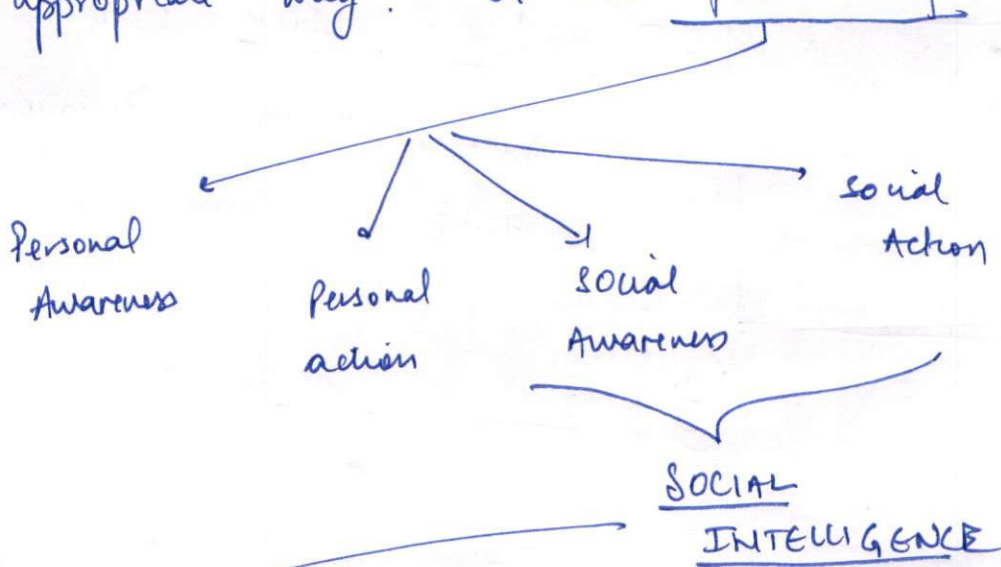 appropriate way.
Personal
Awareness
Personal
action
Social
Awareness
Social
Action
SOCIAL
INTELLIGENCE